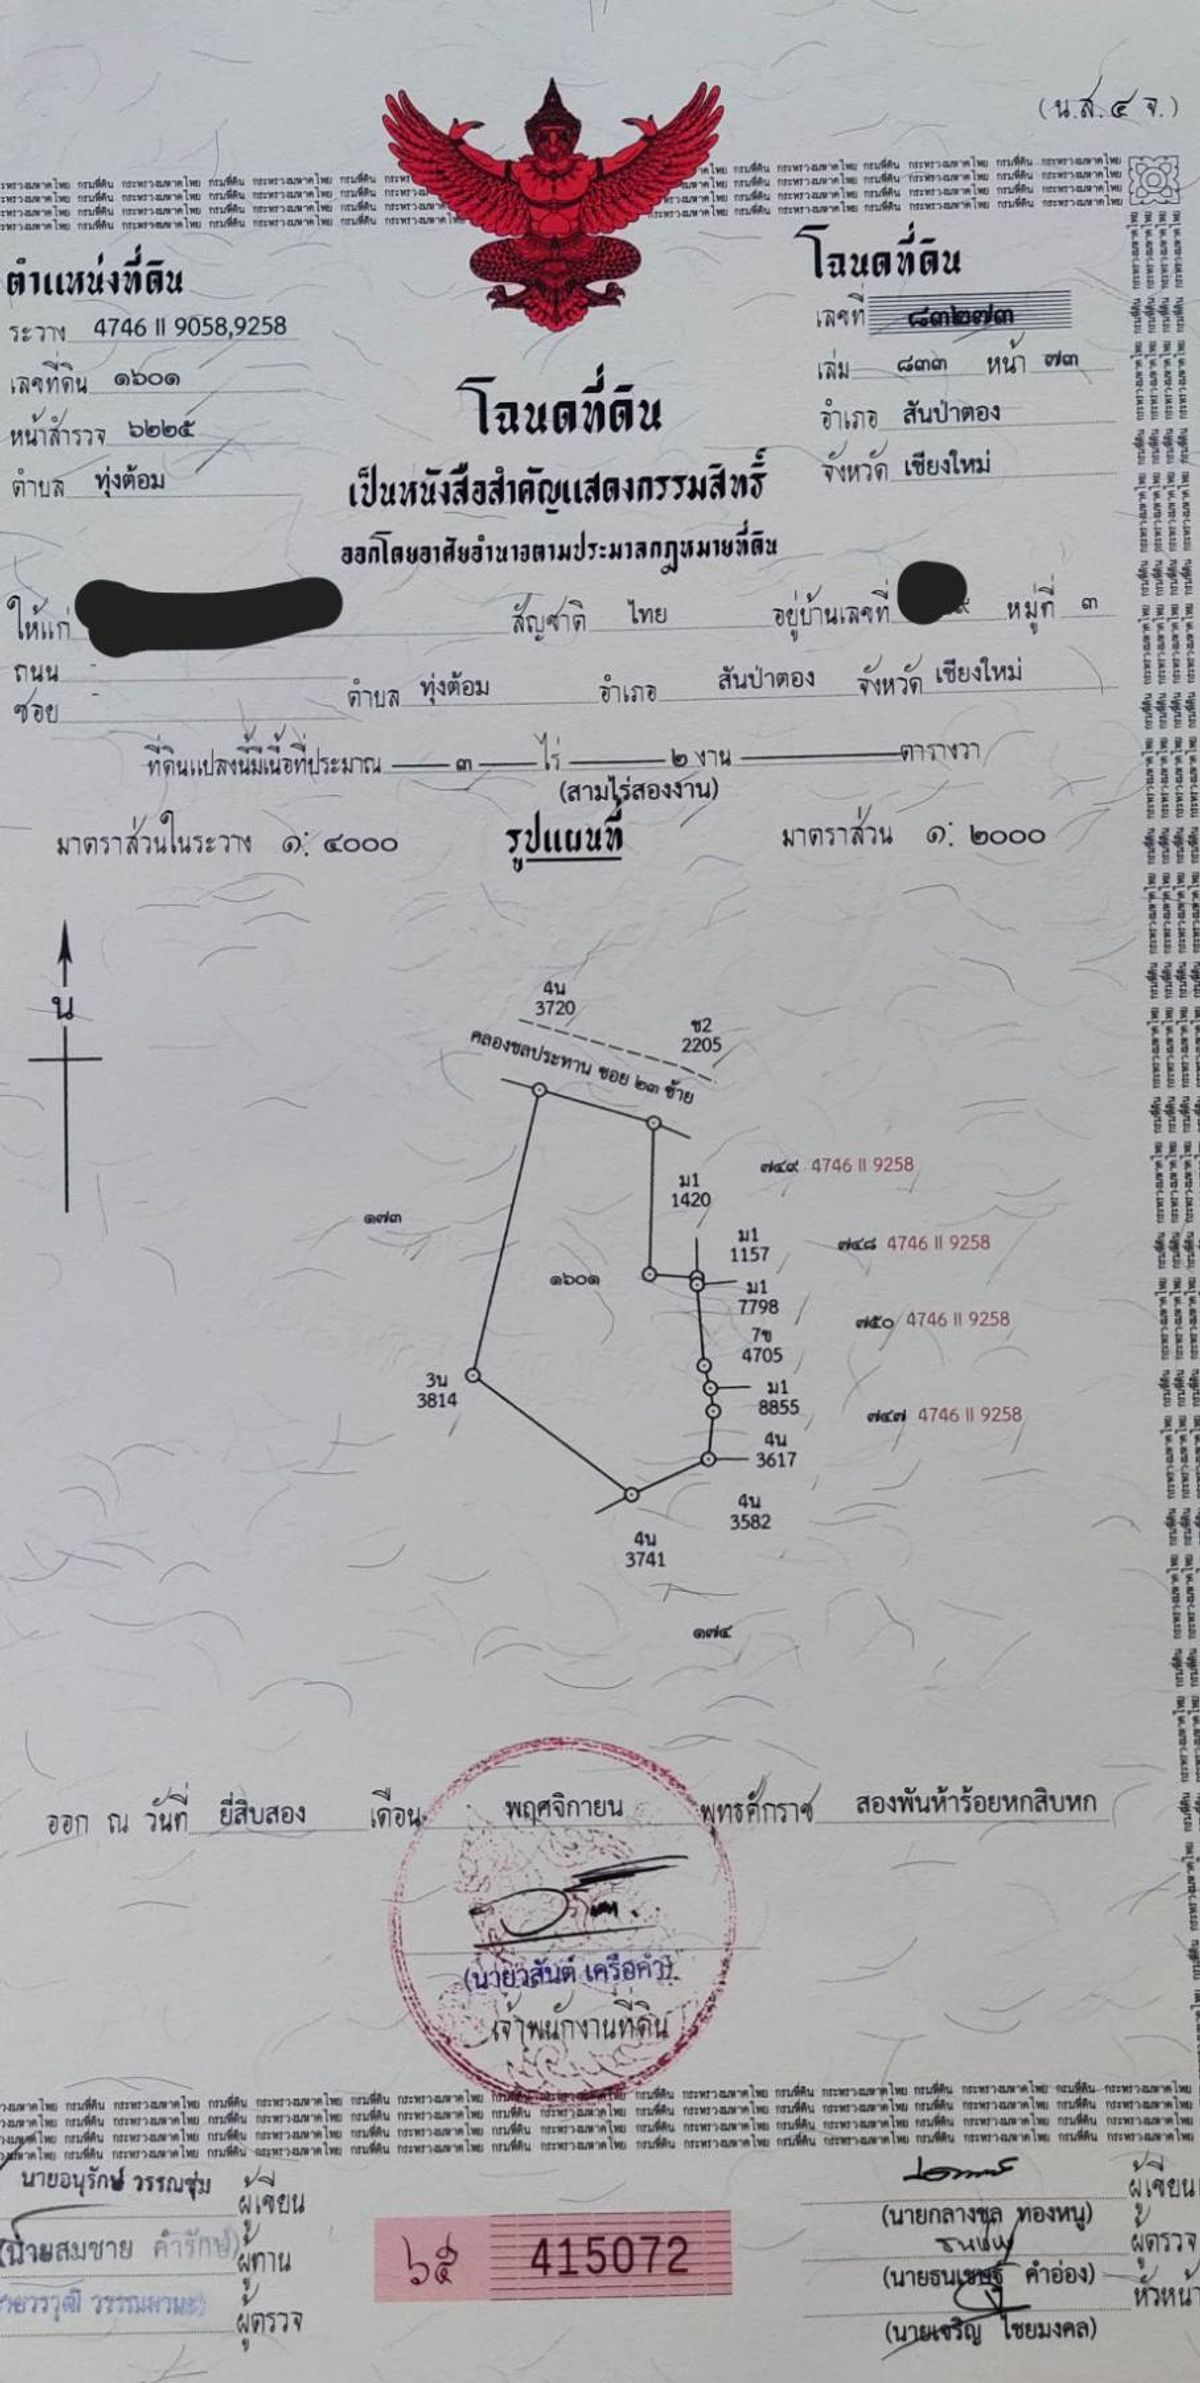 (น.ส.๔ จ.)
กระทรวงมหาดไทย กรมที่ดิน กระทรวงมหาดไทย กรมที่ดิน กระทรวงมหาดไทย กรมที่ดิน
ตำแหน่งที่ดิน
ระวาง 4746 II 9058,9258
เลขที่ดิน ๑๖๐๑
หน้าสำรวจ ๖๒๒๕
ตำบล ทุ่งต้อม
โฉนดที่ดิน
เลขที่ ๘๓๒๗๓
เล่ม ๘๓๓ หน้า ๗๓
อำเภอ สันป่าตอง
จังหวัด เชียงใหม่
โฉนดที่ดิน
เป็นหนังสือสำคัญแสดงกรรมสิทธิ์
ออกโดยอาศัยอำนาจตามประมวลกฎหมายที่ดิน
ให้แก่ สัญชาติ ไทย อยู่บ้านเลขที่ ๙ หมู่ที่ ๓
ถนน -
ซอย - ตำบล ทุ่งต้อม อำเภอ สันป่าตอง จังหวัด เชียงใหม่
ที่ดินแปลงนี้มีเนื้อที่ประมาณ ๓ ไร่ ๒ งาน ตารางวา
(สามไร่สองงาน)
มาตราส่วนในระวาง ๑: ๔๐๐๐ รูปแผนที่ มาตราส่วน ๑: ๒๐๐๐
น
4น
3720
ข2
2205
คลองชลประทาน ซอย ๒๓ ซ้าย
๗๔๙ 4746 II 9258
ม1
1420
๑๗๓
ม1
1157
๗๔๘ 4746 II 9258
๑๖๐๑
ม1
7798
๗๕๐ 4746 II 9258
7ข
4705
3น
3814
ม1
8855
๗๔๗ 4746 II 9258
4น
3617
4น
3582
4น
3741
๑๗๔
ออก ณ วันที่ ยี่สิบสอง เดือน พฤศจิกายน พุทธศักราช สองพันห้าร้อยหกสิบหก
(นายวสันต์ เครือคำ)
เจ้าพนักงานที่ดิน
กระทรวงมหาดไทย กรมที่ดิน กระทรวงมหาดไทย กรมที่ดิน กระทรวงมหาดไทย กรมที่ดิน
นายอนุรักษ์ วรรณชุ่ม ผู้เขียน
(นายสมชาย คำรักษ์) ผู้ทาน
ผู้ตรวจ
๖๕ 415072
ผู้เขียน
(นายกลางชล ทองหนู)
ผู้ตรวจ
(นายธนเชษฐ์ คำอ่อง)
หัวหน้า
(นายเจริญ ไชยมงคล)